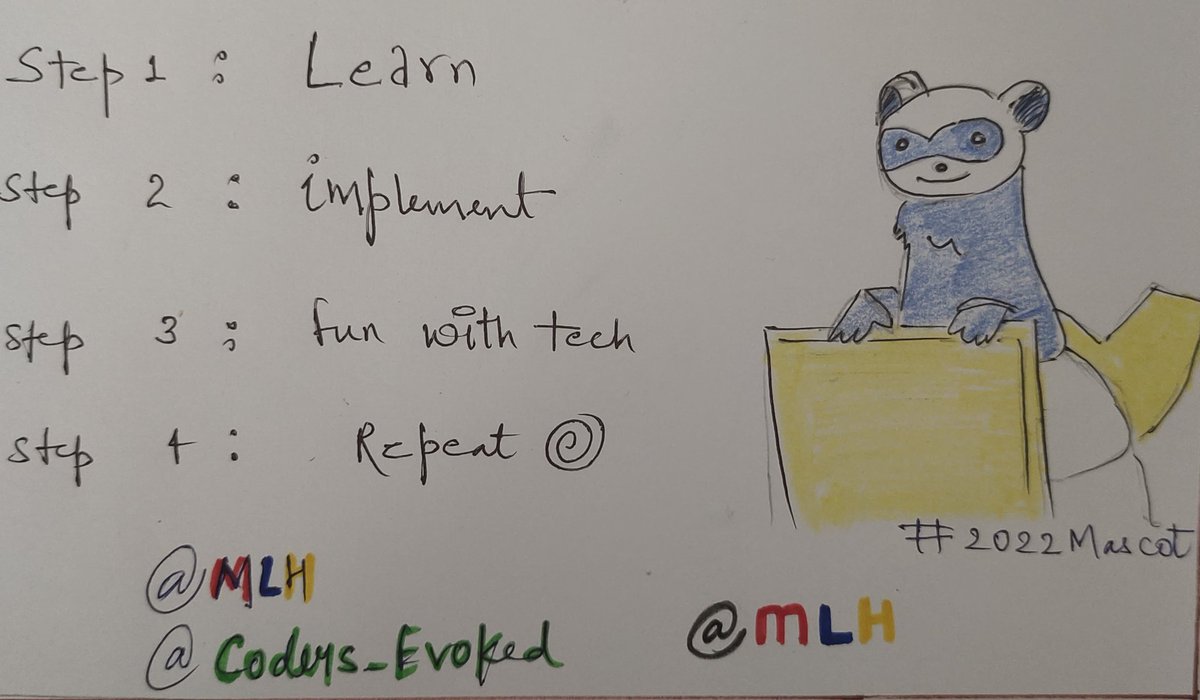 Step 1 : Learn
Step 2 : implement
Step 3 : fun with tech
Step 4 : Repeat
#2022Mascot
@MLH
@Coders_Evoked
@MLH